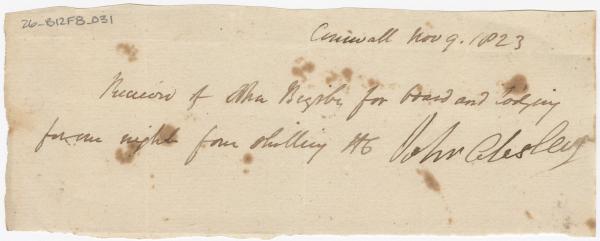 26-B12FB-031
Cornwall Nov 9. 1823
Received of Bigsby for board and lodging
for one night four shilling
John Chesley